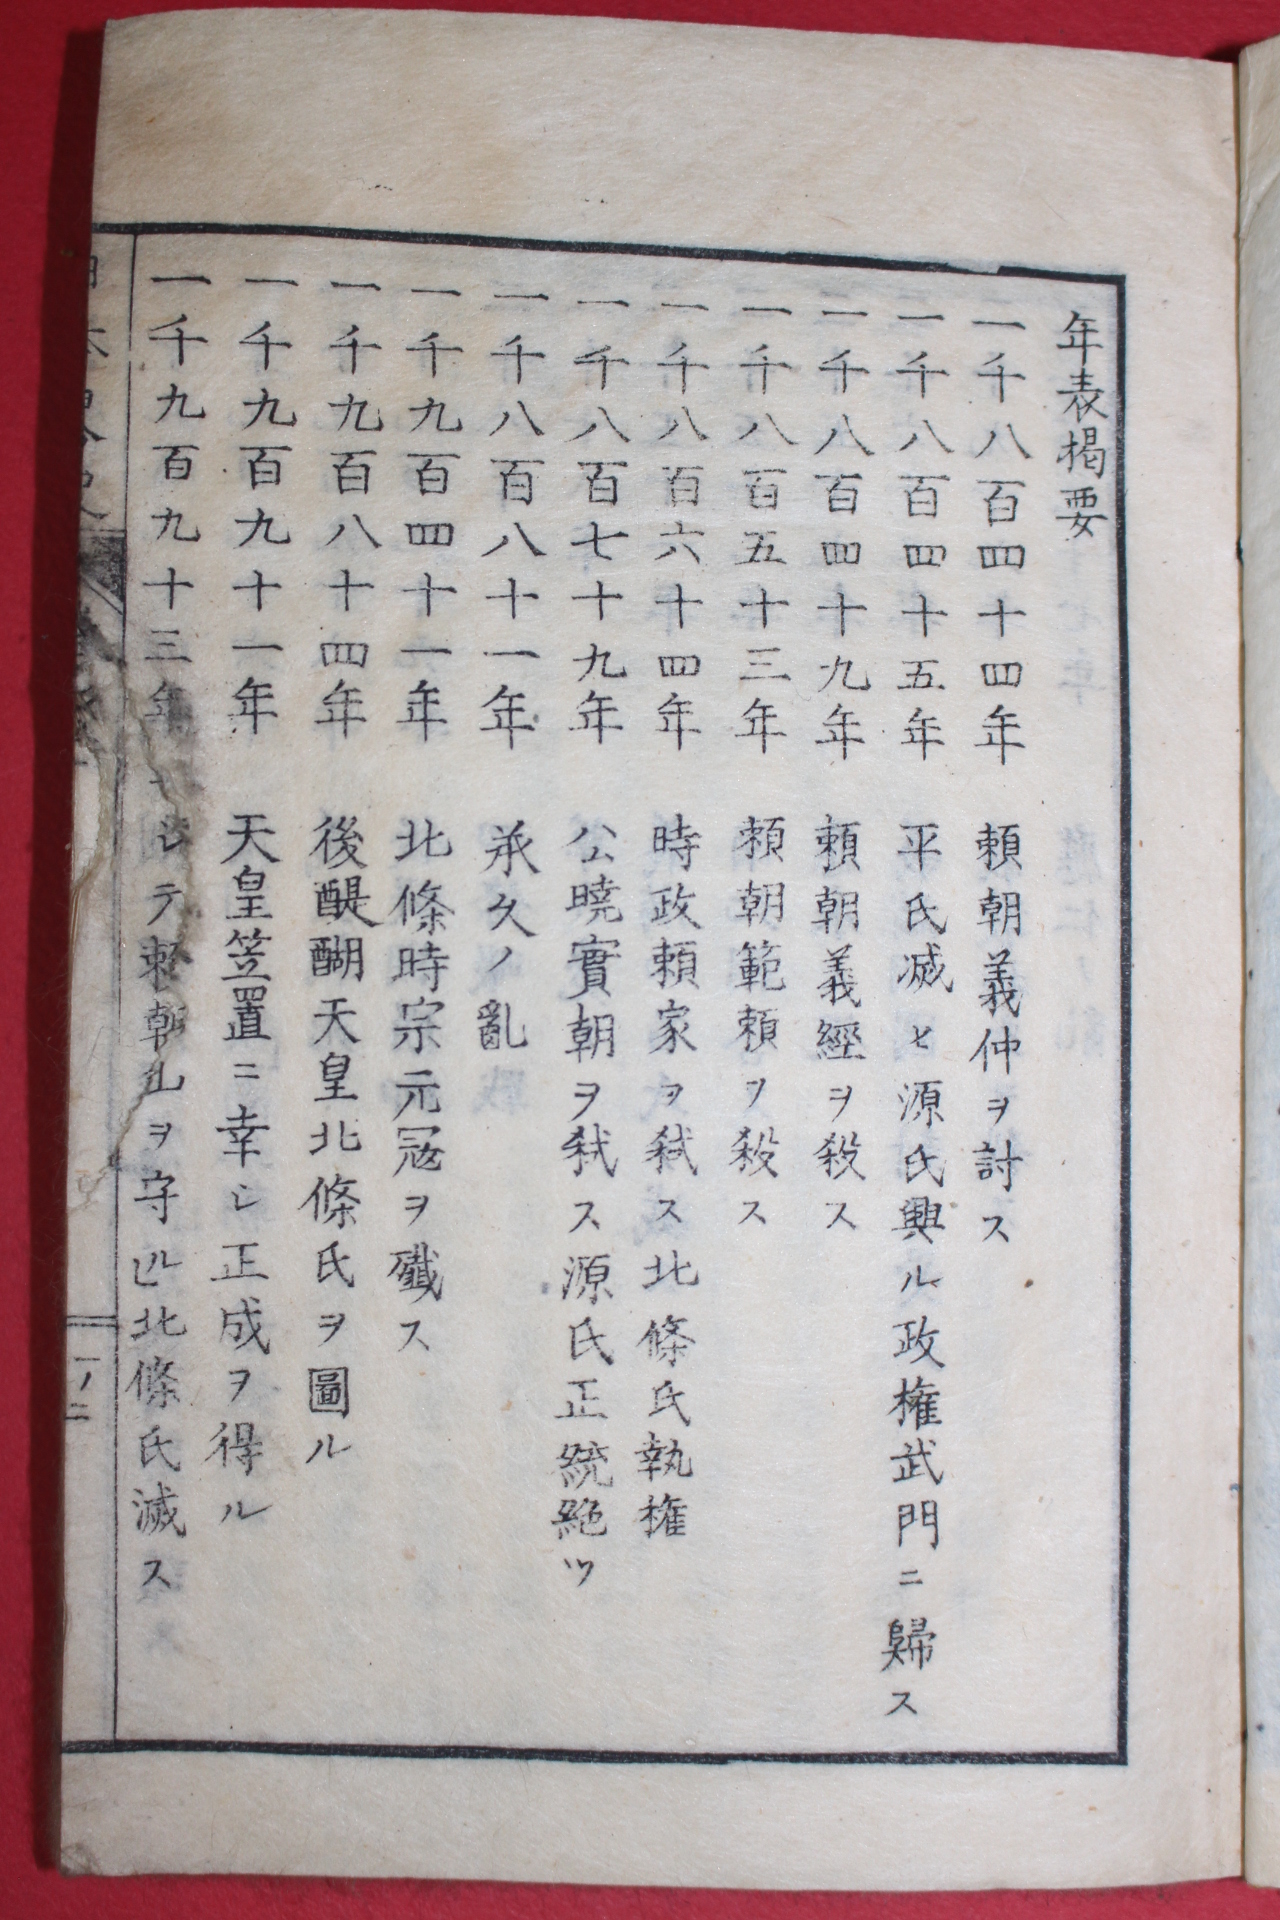 年表掲要
一千八百四十四年　頼朝義仲ヲ討ス
一千八百四十五年　平氏滅ヒ源氏興ル政権武門ニ歸ス
一千八百四十九年　頼朝義經ヲ殺ス
一千八百五十三年　頼朝範頼ヲ殺ス
一千八百六十四年　時政頼家ヲ弑ス北條氏執権
一千八百七十九年　公暁實朝ヲ弑ス源氏正統絶ツ
一千八百八十一年　承久ノ亂
一千九百四十一年　北條時宗元冦ヲ殲ス
一千九百八十四年　後醍醐天皇北條氏ヲ圖ル
一千九百九十一年　天皇笠置ニ幸シ正成ヲ得ル
一千九百九十三年　シテ頼朝ヲ守北條氏滅ス
一ノ二